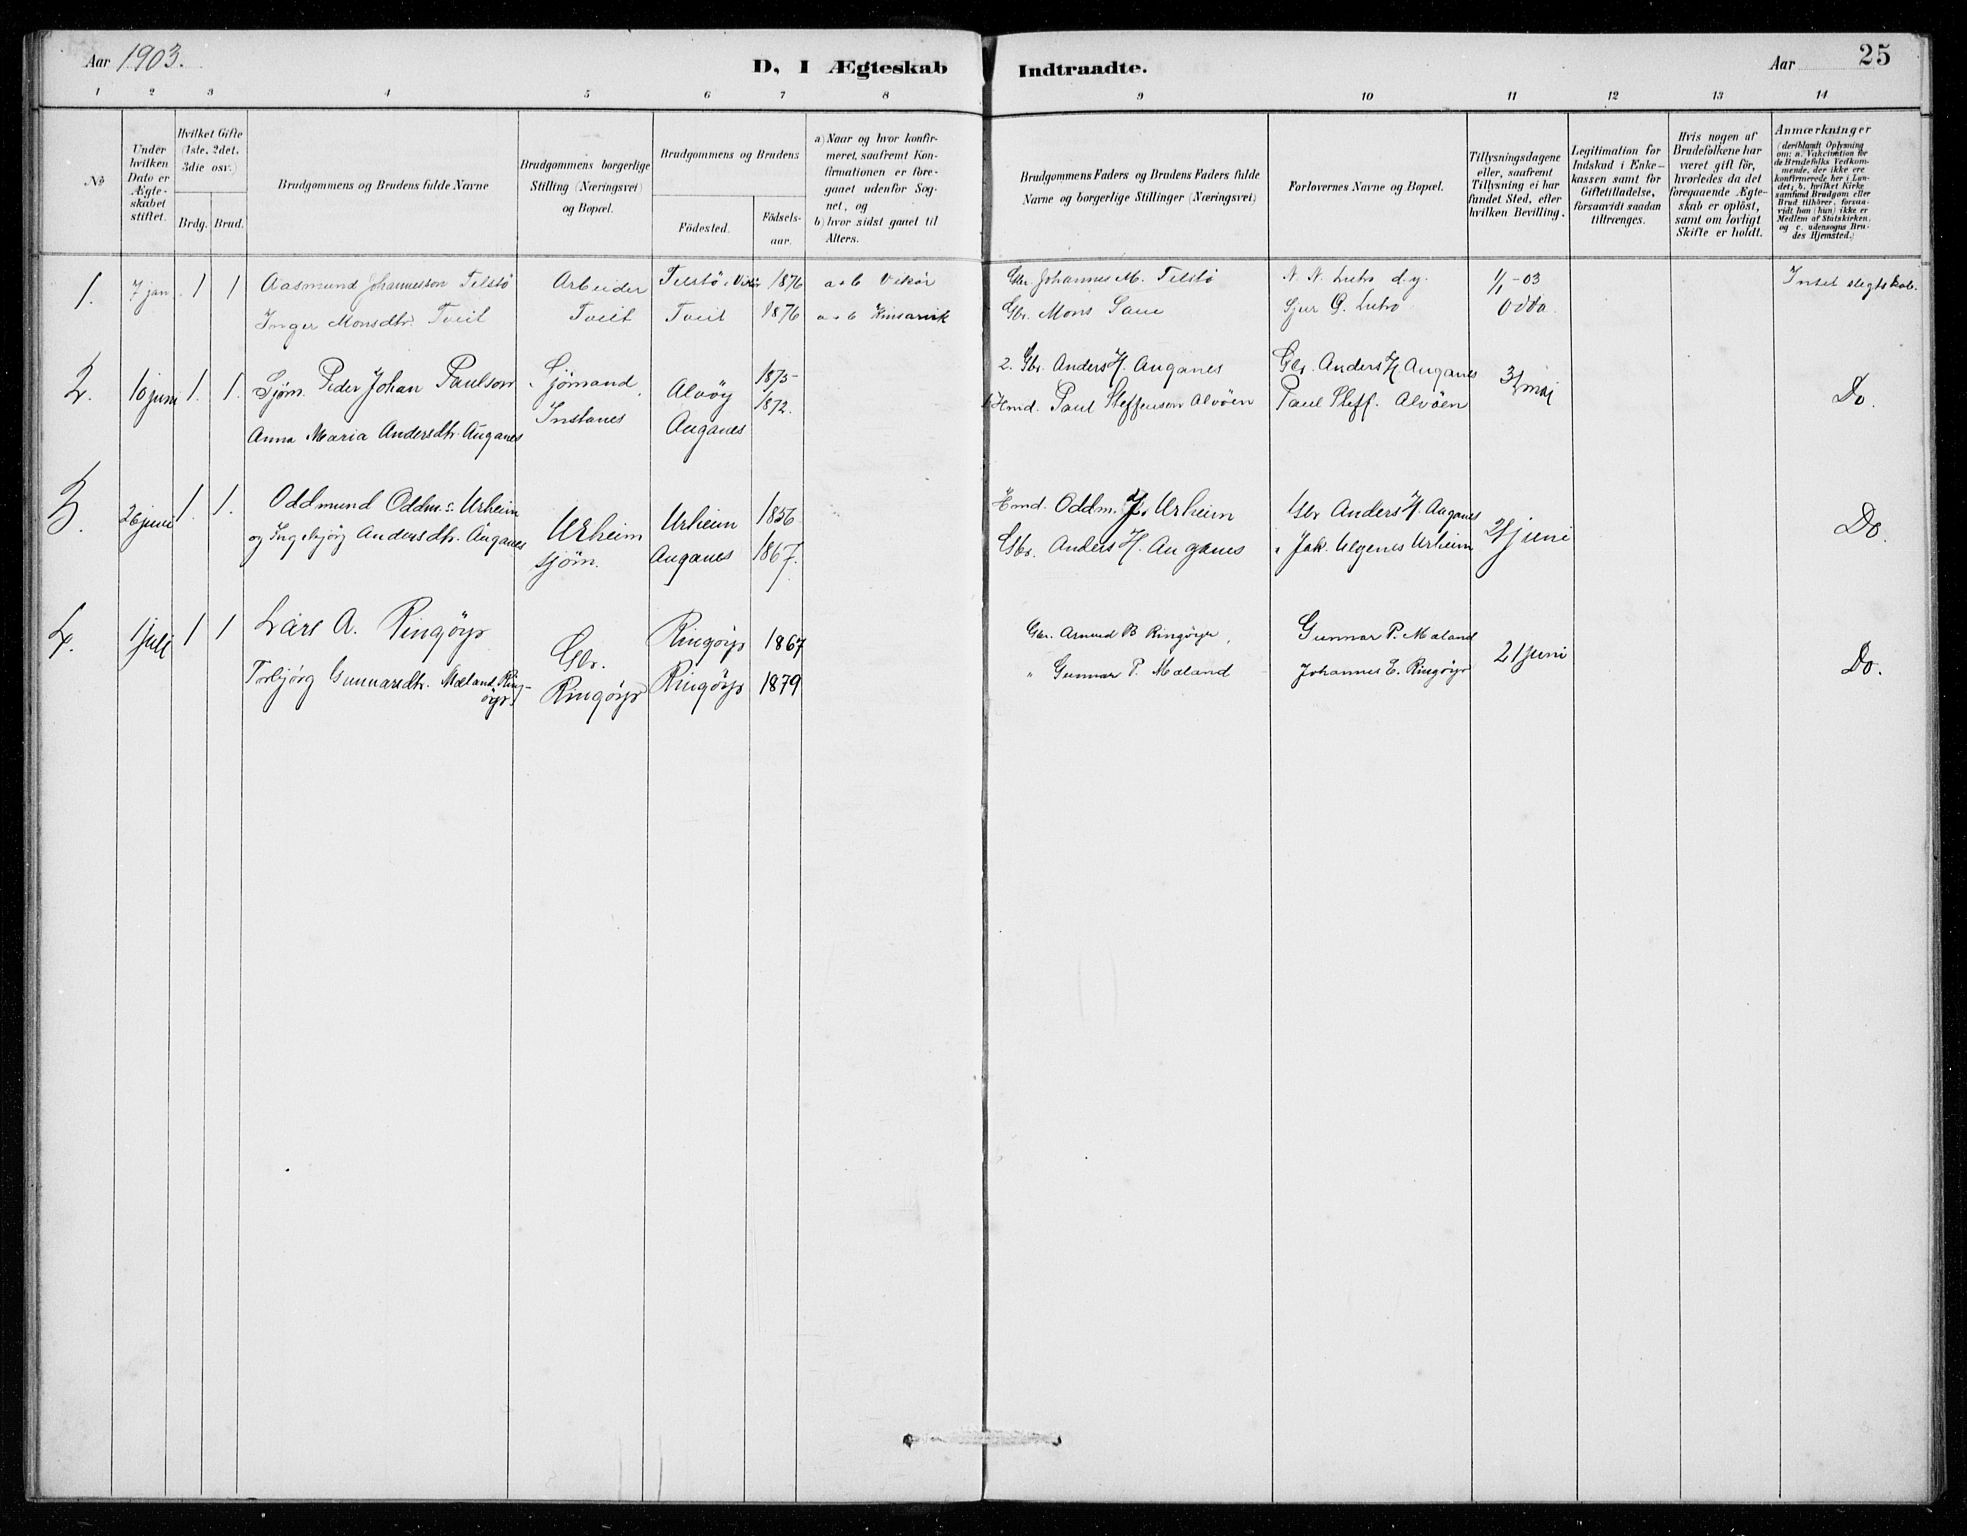 Aar 1903.
D, I Ægteskab Indtraadte.
Aar 25
1 2 3 4 5 6 7 8 9 10 11 12 13 14
№
Under hvilken Dato er Ægteskabet stiftet.
Hvilket Gifte (1ste, 2det, 3die osv.)
Brdg. Brud.
Brudgommens og Brudens fulde Navne
Brudgommens borgerlige Stilling (Næringsvei) og Bopæl.
Brudgommens og Brudens
Födested. Födselsaar.
a) Naar og hvor konfirmeret, saafremt Konfirmationen er foregaaet udenfor Sognet, og
b) hvor sidst gaaet til Alters.
Brudgommens Faders og Brudens Faders fulde Navne og borgerlige Stillinger (Næringsvei)
Forlovernes Navne og Bopæl.
Tillysningsdagene eller, saafremt Tillysning ei har fundet Sted, efter hvilken Bevilling.
Legitimation for Indskud i Enkekassen samt for Giftetilladelse, forsaavidt saadan tiltrænges.
Hvis nogen af Brudefolkene har været gift för, hvorledes da det foregaaende Ægteskab er oplöst, samt om lovligt Skifte er holdt.
Anmærkninger (deriblandt Oplysning om: a. Vakcination for de Brudefolks Vedkommende, der ikke ere konfirmerede her i Landet; b. hvilket Kirkesamfund Brudgom eller Brud tilhörer, forsaavidt han (hun) ikke er Medlem af Statskirken, og c. udensogns Brudes Hjemsted.)
1. 7 jan. 1 1 Aasmund Johannesson Telstø Arbeider Telstø i Vikør 1876 a+b Vikør Gbr. Johannes M. Telstø N. N. Lutro d.y. 1/1-03 Intet slegtskab.
Inger Monsdtr. Tveit Tveit Tveit 1876 a+b Kinsarvik Gbr. Mons Saue Sjur G. Lutro Odda
2. 10 juni 1. 1. Sjøm. Peder Johan Paulson Sjømand Alvøy 1875 2. Gbr. Anders H. Auganes Gbr. Anders H Auganes 31/mai Do.
Anna Maria Andersdtr. Auganes Instanes Auganes 1872. 1. Hmd. Paul Steffenson Alvøen Paul Steff. Alvøen
3. 26 juni 1. 1. Oddmund Oddms. Urheim Urheim Urheim 1856 Hmd. Oddm. J. Urheim Gbr Anders H. Auganes 21 juni Do.
og Ingebjørg Andersdtr. Auganes sjøm. Auganes 1867. Gbr. Anders H. Auganes " Jak. Ulgenes Urheim
4. 1 juli 1 1 Lars A. Ringøyr Gbr. Ringøyr 1867 Gbr. Arnved B Ringøyr, Gunnar P. Mæland 21 juni Do.
Torbjørg Gunnarsdtr. Mæland Ringøyr. Ringøyr Ringøyr 1879 " Gunnar P. Mæland Johannes E. Ringøyr